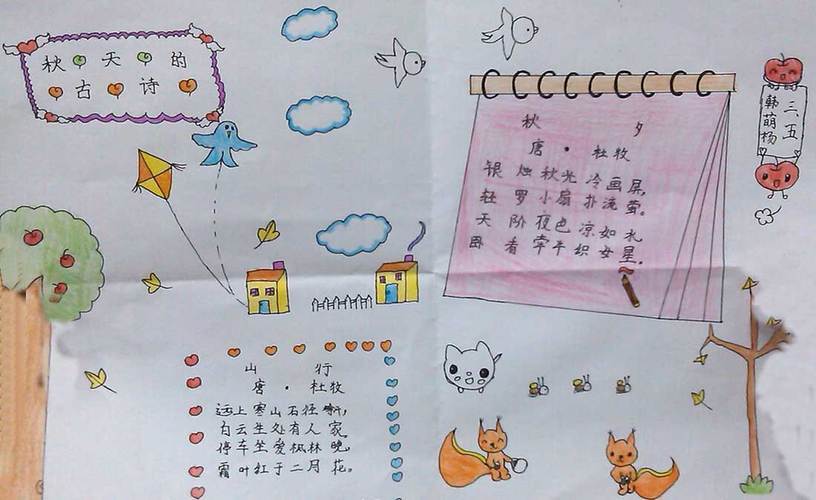 秋天的
古诗
秋夕
唐·杜牧
银烛秋光冷画屏,
轻罗小扇扑流萤。
天阶夜色凉如札
卧看牵牛织女星。
三五
韩萌杨
山行
唐·杜牧
远上寒山石径
白云生处有人家
停车坐爱枫林晚,
霜叶红于二月花。